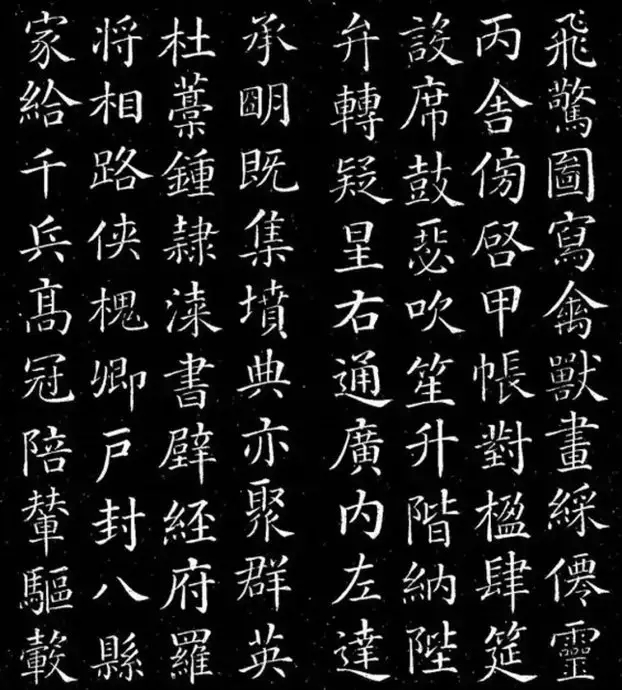 飛驚圖寫禽獸畫綵僊靈
丙舍傍啓甲帳對楹肆筵
設席鼓瑟吹笙升階納陛
弁轉疑星右通廣内左達
承朙既集墳典亦聚群英
杜藁鍾隸漆書壁経府羅
将相路俠槐卿戶封八縣
家給千兵髙冠陪輦驅轂